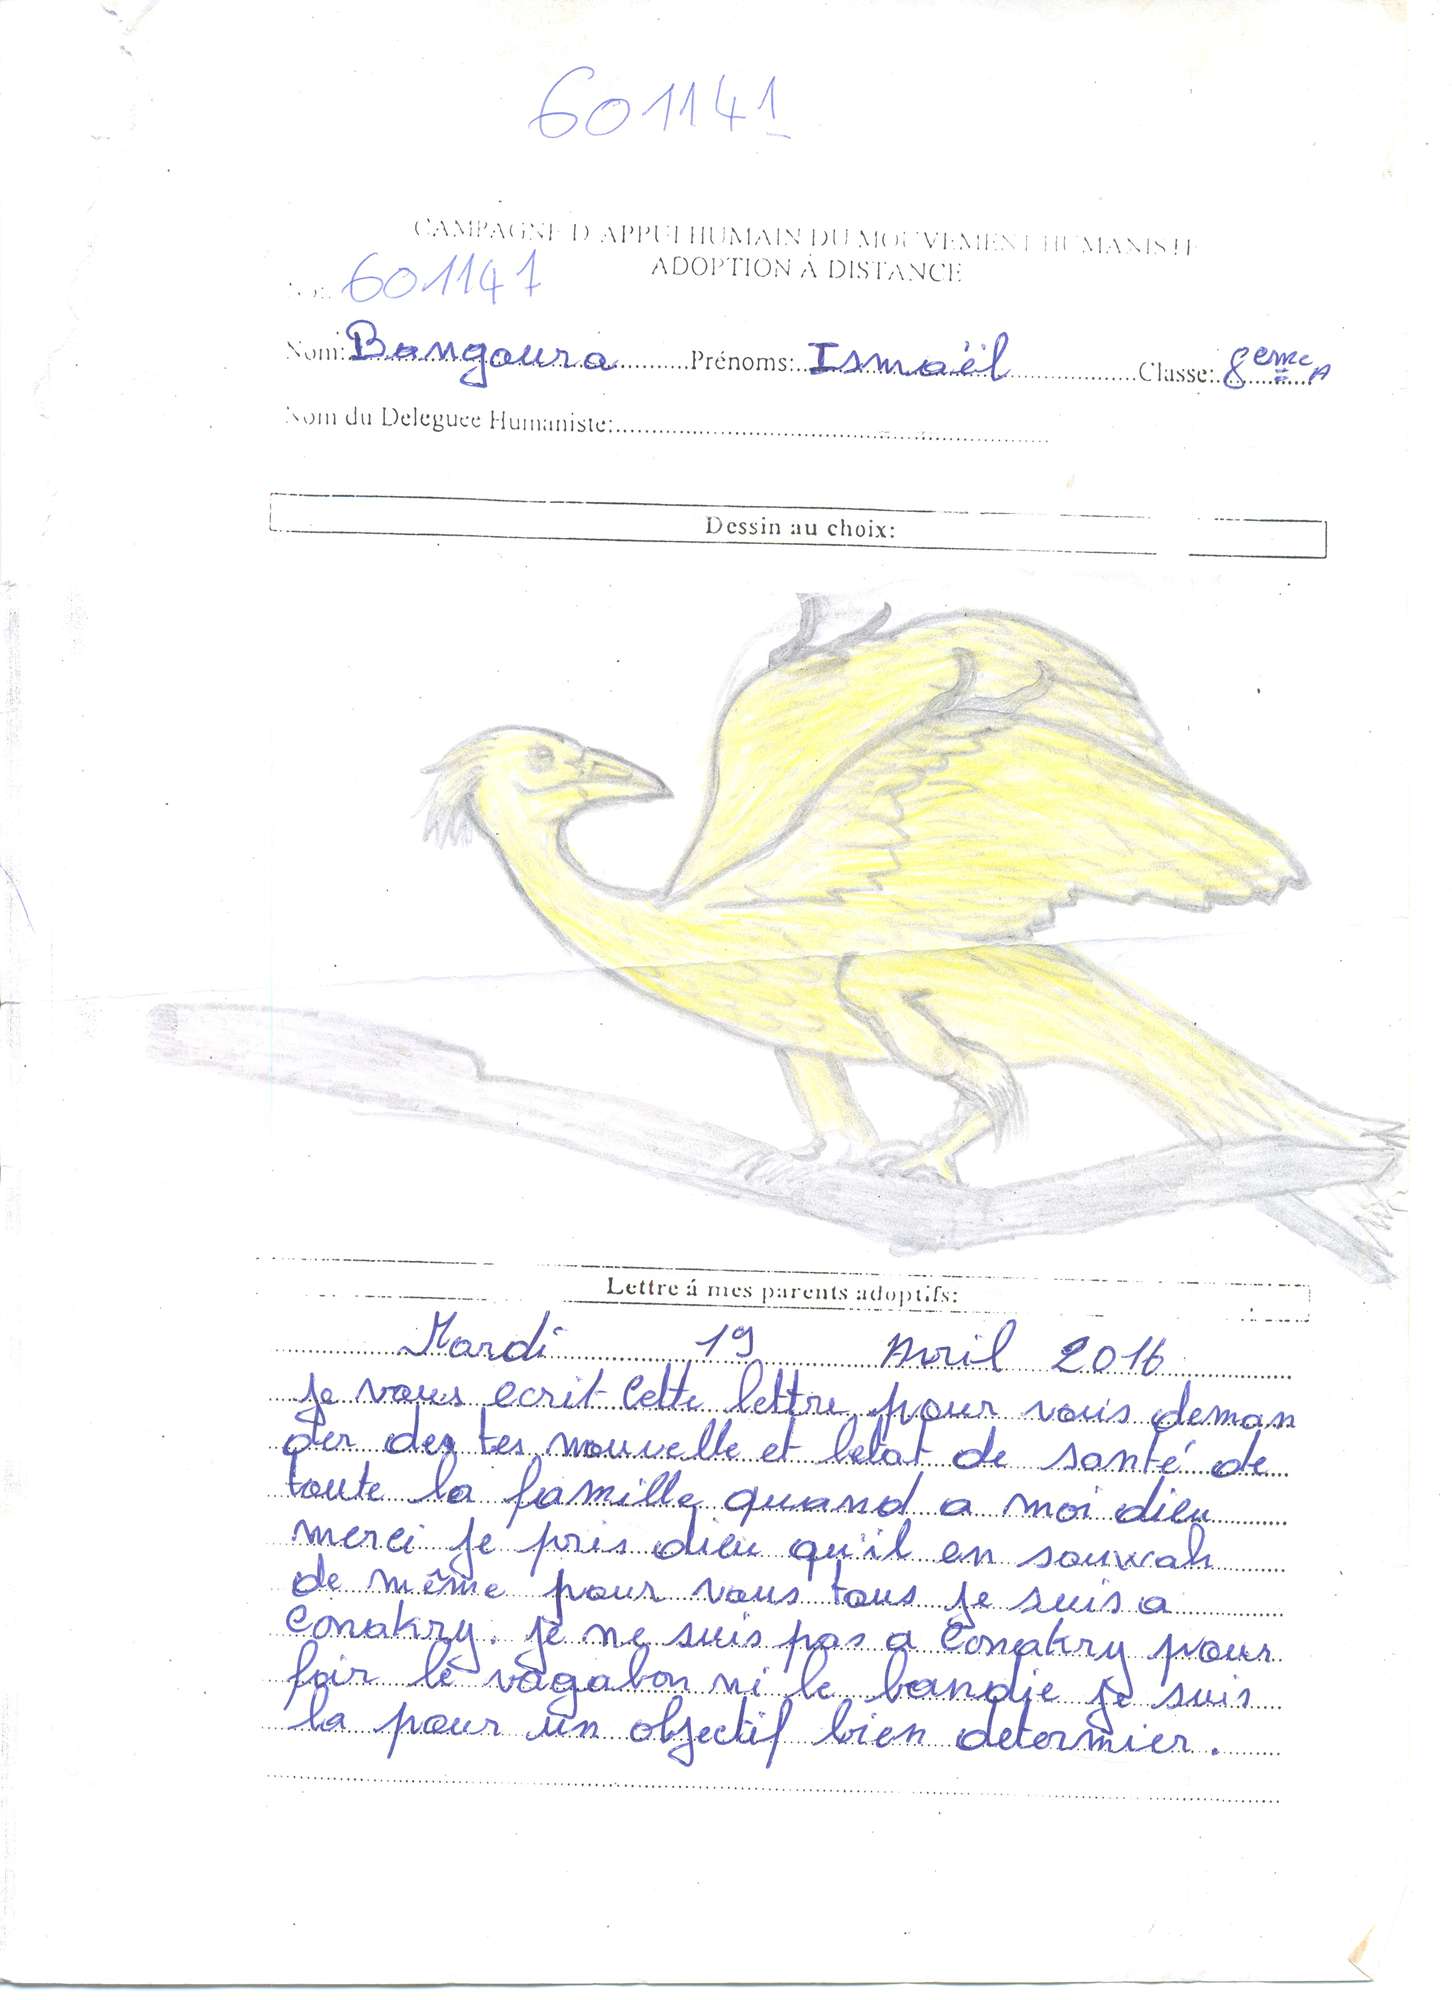 601141
CAMPAGNE D'APPUI HUMAIN DU MOUVEMENT HUMANISTE
ADOPTION Á DISTANCE
No: 601141
Nom: Bangoura Prénoms: Ismaël Classe: 8eme A
Nom du Deleguee Humaniste:
Dessin au choix:
Lettre á mes parents adoptifs:
Mardi 19 Avril 2016
je vous ecrit cette lettre pour vous deman
der des tes nouvelle et letat de santé de
toute la famille quand a moi dieu
merci je pris dieu qu'il en souwah
de même pour vous tous je suis a
Conakry. je ne suis pas a Conakry pour
fair le vagabon ni le bandie je suis
la pour un objectif bien determier.